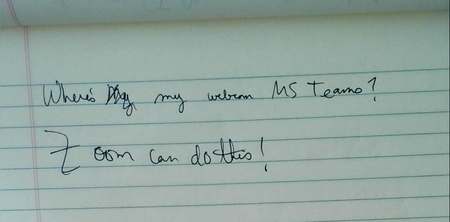 Where's my webcam MS Teams?
Zoom can do this!